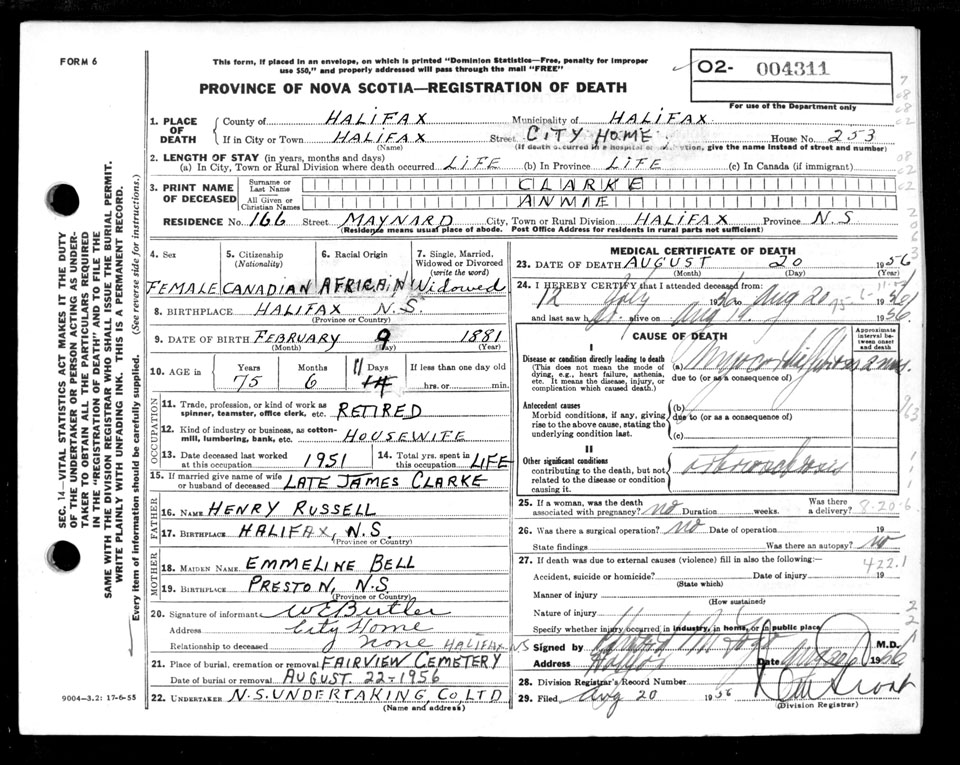 FORM 6
This form, if placed in an envelope, on which is printed "Dominion Statistics—Free, penalty for improper
use $50," and properly addressed will pass through the mail "FREE"
O2- 004311
For use of the Department only
PROVINCE OF NOVA SCOTIA—REGISTRATION OF DEATH
1. PLACE OF DEATH
County of HALIFAX Municipality of HALIFAX
If in City or Town HALIFAX Street CITY HOME House No. 253
(Name) (If death occurred in a hospital or institution, give the name instead of street and number)
2. LENGTH OF STAY (in years, months and days)
(a) In City, Town or Rural Division where death occurred LIFE (b) In Province LIFE (c) In Canada (if immigrant)
3. PRINT NAME OF DECEASED
Surname or Last Name CLARKE
All Given or Christian Names ANMIE
RESIDENCE No. 166 Street MAYNARD City, Town or Rural Division HALIFAX Province N.S
(Residence means usual place of abode. Post Office Address for residents in rural parts not sufficient)
4. Sex 5. Citizenship (Nationality) 6. Racial Origin 7. Single, Married, Widowed or Divorced (write the word)
FEMALE CANADIAN AFRICAIN Widowed
8. BIRTHPLACE HALIFAX N.S.
(Province or Country)
9. DATE OF BIRTH FEBRUARY 9 1881
(Month) (Day) (Year)
10. AGE in Years Months Days If less than one day old
75 6 11 14 hrs. or min.
OCCUPATION
11. Trade, profession, or kind of work as
spinner, teamster, office clerk, etc. RETIRED
12. Kind of industry or business, as cotton-
mill, lumbering, bank, etc. HOUSEWIFE
13. Date deceased last worked at this occupation 1951 14. Total yrs. spent in this occupation LIFE
15. If married give name of wife
or husband of deceased LATE JAMES CLARKE
FATHER
16. NAME HENRY RUSSELL
17. BIRTHPLACE HALIFAX, N.S.
(Province or Country)
MOTHER
18. MAIDEN NAME EMMELINE BELL
19. BIRTHPLACE PRESTON, N.S
(Province or Country)
20. Signature of informant W E Butler
Address City Home
Relationship to deceased none HALIFAX NS
21. Place of burial, cremation or removal FAIRVIEW CEMETERY
Date of burial or removal AUGUST. 22-1956
22. UNDERTAKER N.S. UNDERTAKING CO LTD
(Name and address)
9004—3.2: 17-6-55
MEDICAL CERTIFICATE OF DEATH
23. DATE OF DEATH AUGUST 20 1956
(Month) (Day) (Year)
24. I HEREBY CERTIFY that I attended deceased from:
12 July 1956 to Aug 20 1956
and last saw h er alive on Aug 19 1956
CAUSE OF DEATH
Approximate interval between onset and death
I
Disease or condition directly leading to death
(This does not mean the mode of
dying, e.g., heart failure, asthenia,
etc. It means the disease, injury, or
complication which caused death.)
(a)
due to (or as a consequence of)
Antecedent causes
Morbid conditions, if any, giving
rise to the above cause, stating the
underlying condition last.
(b)
due to (or as a consequence of)
(c)
II
Other significant conditions
contributing to the death, but not
related to the disease or condition
causing it.
25. If a woman, was the death
associated with pregnancy? no Duration weeks. Was there a delivery? 8-20-6
26. Was there a surgical operation? no Date of operation 19
State findings Was there an autopsy? no
27. If death was due to external causes (violence) fill in also the following: 422.1
Accident, suicide or homicide? Date of injury 19
(State which)
Manner of injury
(How sustained)
Nature of injury
Specify whether injury occurred in industry, in home, or in public place
Signed by M.D.
Address Halifax Date Aug 20 1956
28. Division Registrar's Record Number
29. Filed Aug 20 1956
(Division Registrar)
SEC. 14—VITAL STATISTICS ACT MAKES IT THE DUTY
OF THE UNDERTAKER OR PERSON ACTING AS UNDER-
TAKER TO OBTAIN ALL THE PARTICULARS REQUIRED
IN THE "REGISTRATION OF DEATH" AND TO FILE THE
SAME WITH THE DIVISION REGISTRAR WHO SHALL ISSUE THE BURIAL PERMIT.
WRITE PLAINLY WITH UNFADING INK. THIS IS A PERMANENT RECORD.
Every item of information should be carefully supplied. (See reverse side for instructions.)